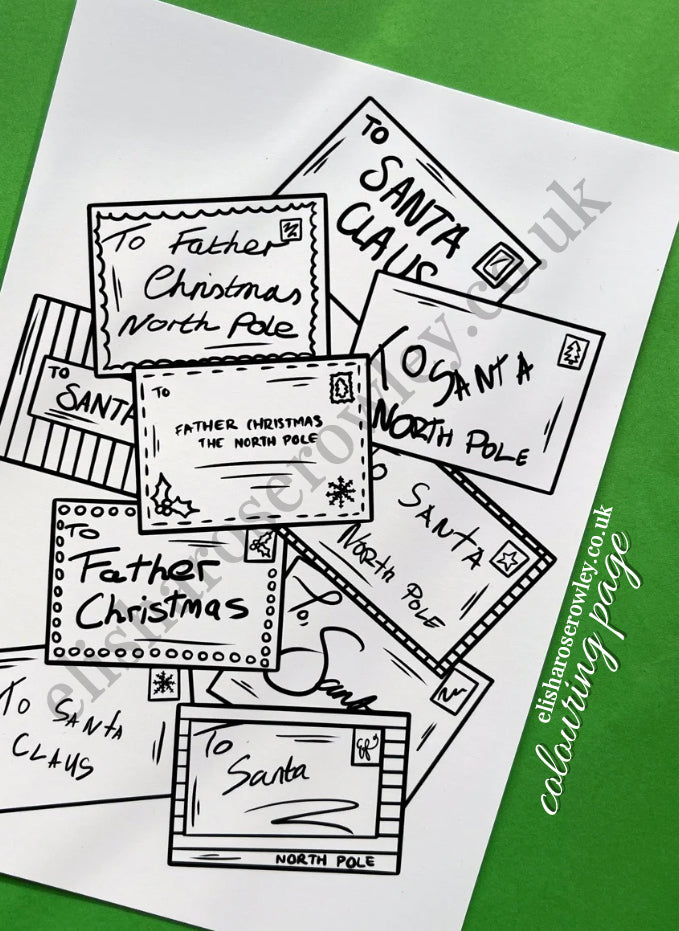 TO
SANTA
CLAUS
To Father
Christmas
North Pole
TO SANTA
NORTH POLE
TO
SANTA
TO
FATHER CHRISTMAS
THE NORTH POLE
SANTA
North POLE
To
Father
Christmas
To
Santa
To SANTA
CLAUS
To
Santa
NORTH POLE
elisharoserowley.co.uk
elisharoserowley.co.uk
colouring page